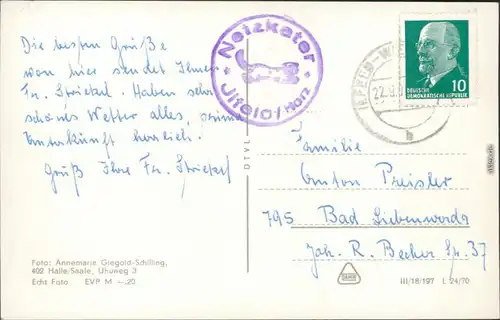 Die besten Grüße
von hier sendet Ihnen
Fr. Strickel. Haben sehr
schönes Wetter alles, prima
Unterkunft herrlich.
Gruß Ihre Fr. Strickel
Netzkater
Ilfeld/Harz
22.8.
DEUTSCHE
DEMOKRATISCHE REPUBLIK
10
b
Familie
Anton Preisler
795 Bad Liebenwerda
Joh. R. Becher Str. 37
Foto: Annemarie Giegold-Schilling,
402 Halle/Saale, Uhuweg 3
Echt Foto EVP M -.20
III/18/197 L 24/70